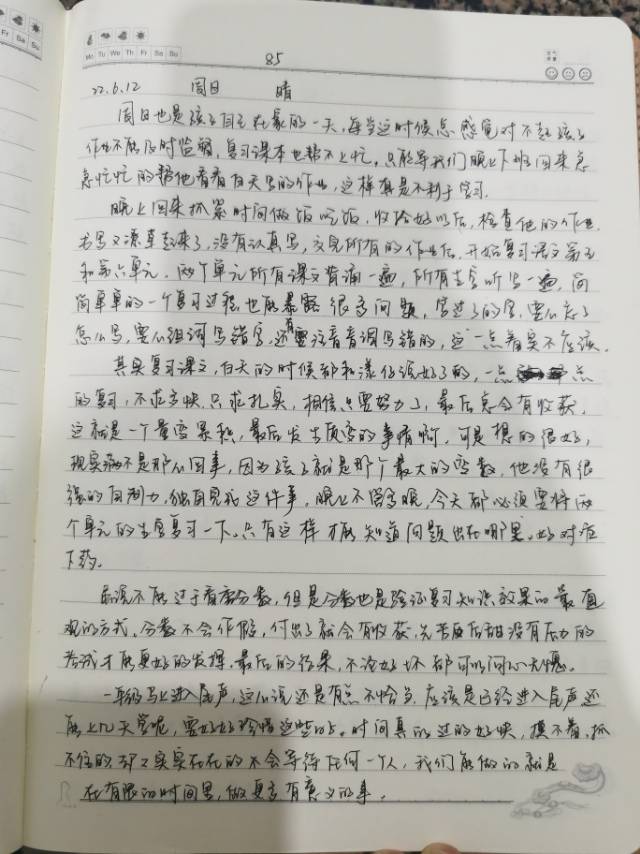 Fr Sa Su
Mo Tu We Th Fr Sa Su
85
22.6.12 周日 晴
周日也是孩子自己在家的一天,每当这时候总感觉对不起孩子
作业不能及时监督,复习课本也帮不上忙。只能等我们晚上下班回来急
急忙忙的帮他看看白天写的作业,这样真是不利于学习.
晚上回来抓紧时间做饭吃饭,收拾好以后,检查他的作业.
书写又潦草起来了,没有认真写,交完所有的作业后,开始复习语文第五
和第六单元,两个单元所有课文背诵一遍,所有生字听写一遍,简
简单单的一个复习过程也能暴露很多问题,学过了的字,要么忘了
怎么写,要么组词写错字,还有要注音音调写错的,这一点着实不应该.
其实复习课文,白天的时候都和漾仔说好了的,一点一点
的复习,不求多快,只求扎实,相信只要努力了,最后总会有收获.
这就是一个量变累积,最后发生质变的事情啊,可是想的很好,
现实并不是那么回事,因为孩子就是那个最大的变数,他没有很
强的自制力,独自完成这件事,晚上不管多晚,今天都必须要将两
个单元的生字复习一下。只有这样才能知道问题出在哪里。好对症
下药。
虽说不能过于看重分数,但是分数也是验证复习知识效果的最直
观的方式,分数不会作假,付出了就会有收获,先苦后甜没有压力的
考试才能更好的发挥.最后的结果,不论好坏都可以问心无愧。
一年级马上进入尾声,这么说还是有点不恰当,应该是已经进入尾声还
能上几天学呢,要好好珍惜这些时光。时间真的过的好快,摸不着,抓
不住的却又实实在在的不会等待任何一个人,我们能做的就是
在有限的时间里,做更多有意义的事.